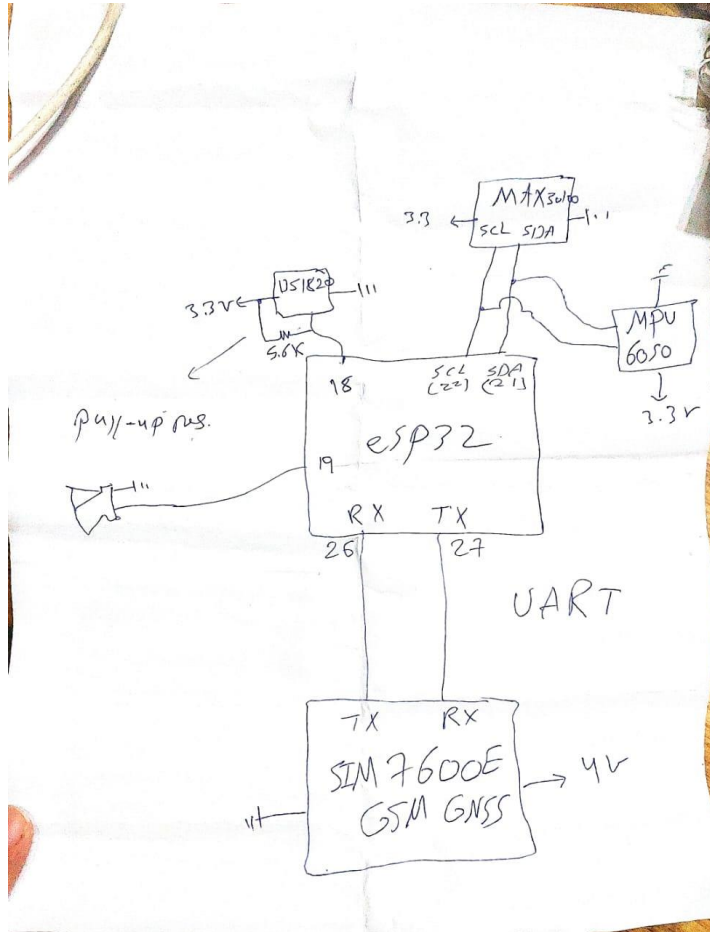 MAX30100
3.3
SCL SDA
DS1820
3.3V
5.6K
MPU
6050
3.3V
18
SCL
(22)
SDA
(21)
pull-up res.
esp32
19
RX TX
26 27
UART
TX RX
SIM7600E
GSM GNSS
4V